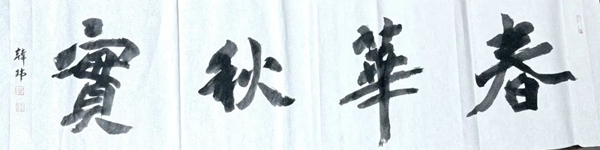 春華秋實
韓玮